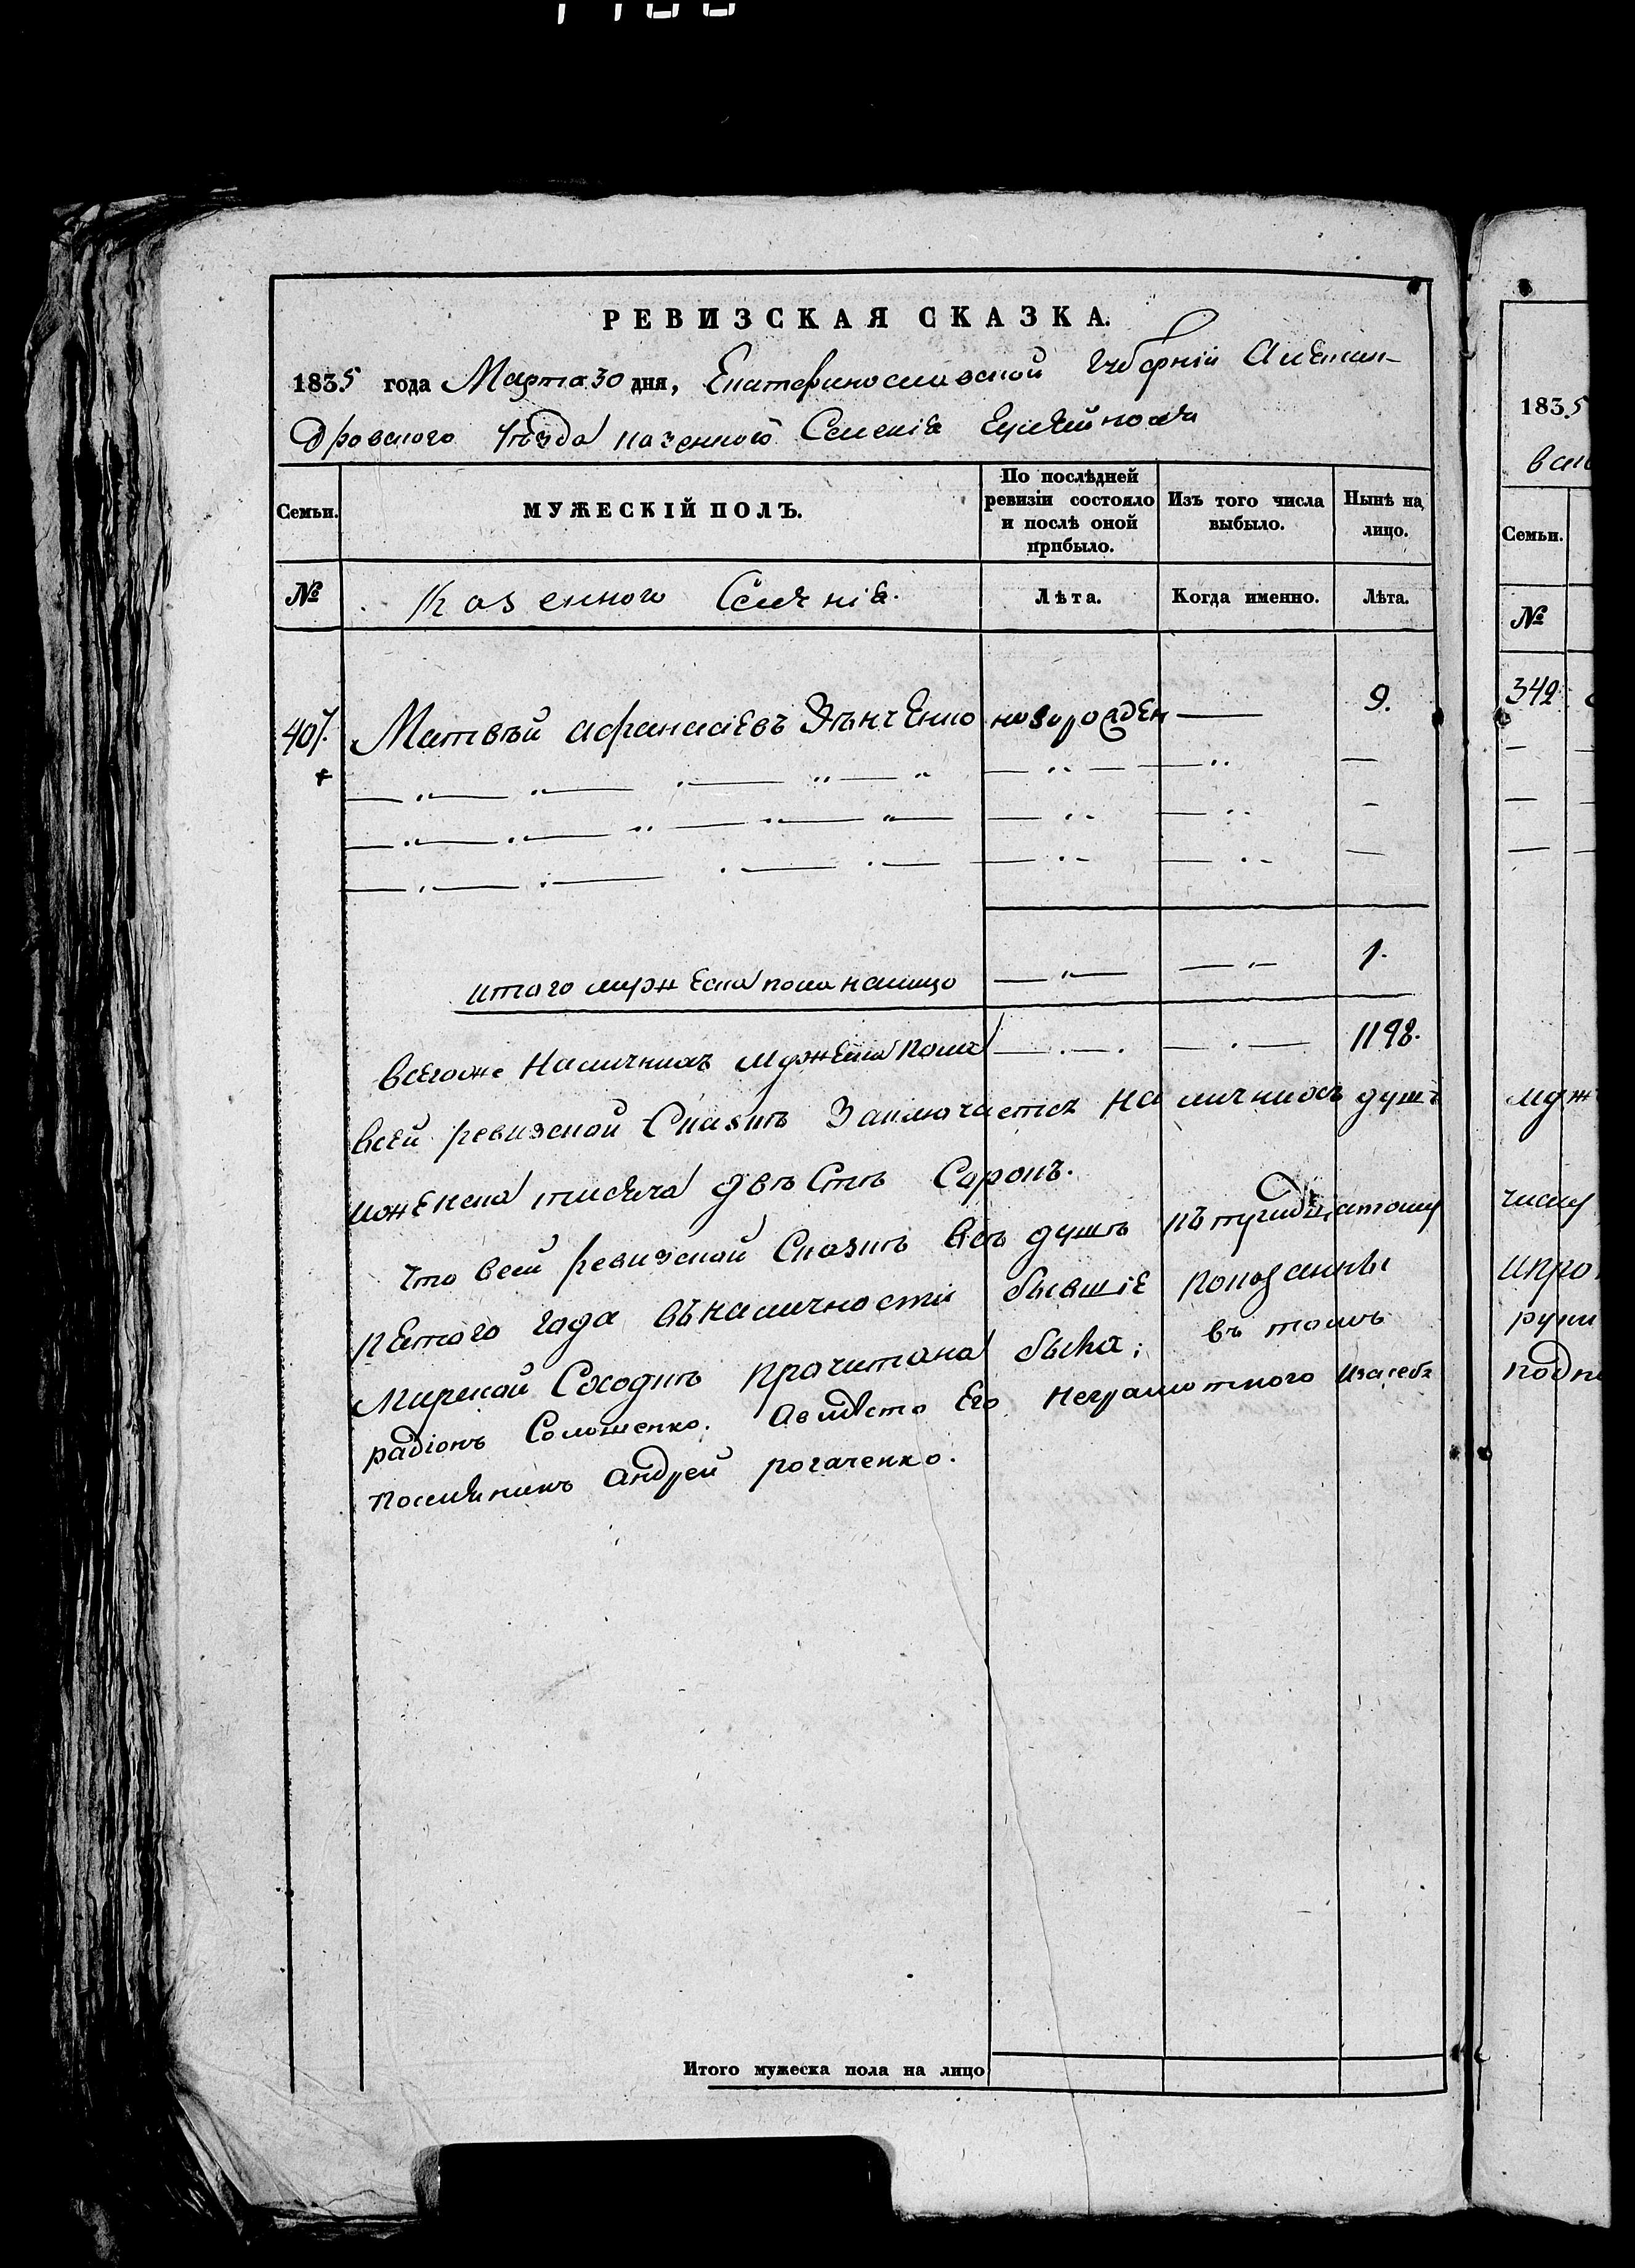 РЕВИЗСКАЯ СКАЗКА.
1835 года Марта 30 дня, Екатеринославской Губерніи Алексан-
дровского уѣзда казенного Селенія
Семьи. МУЖЕСКІЙ ПОЛЪ. По послѣдней ревизіи состояло и послѣ оной прибыло. Изъ того числа выбыло. Нынѣ на лицо.
№ Казенного Селенія. Лѣта. Когда именно. Лѣта.
407. Матвѣй Афанасіевъ новорожден — 9.
итого мужеска пола налицо 1.
всегоже Наличнихъ мужеска пола 1198.
всей ревизской Сказкѣ Заключается наличнихъ душъ
женска тисяча двѣстѣ Сорокъ.
Что всей ревизской Сказкѣ всѣ душѣ
пятого года въналичности бывшіе показанны
Мирской Сходкѣ прочитана была; въ томъ
радіонъ Соломенко. Авмѣсто Его неграмотного изасебя
поселянинъ Андрей рогаченко.
Итого мужеска пола на лицо
1835
Семьи.
№
342
муж
числу
ипро
руки
подпи